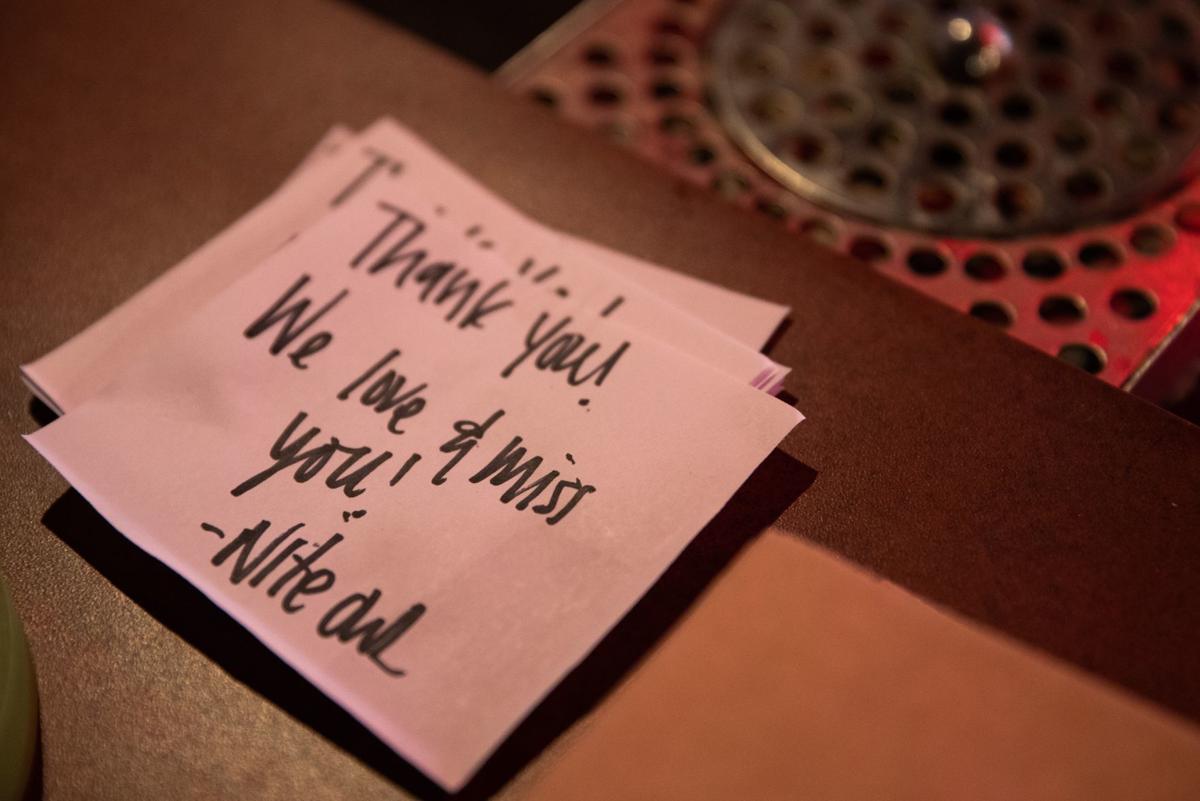 T
Thank you!
We love & miss
you!
-Nite Owl